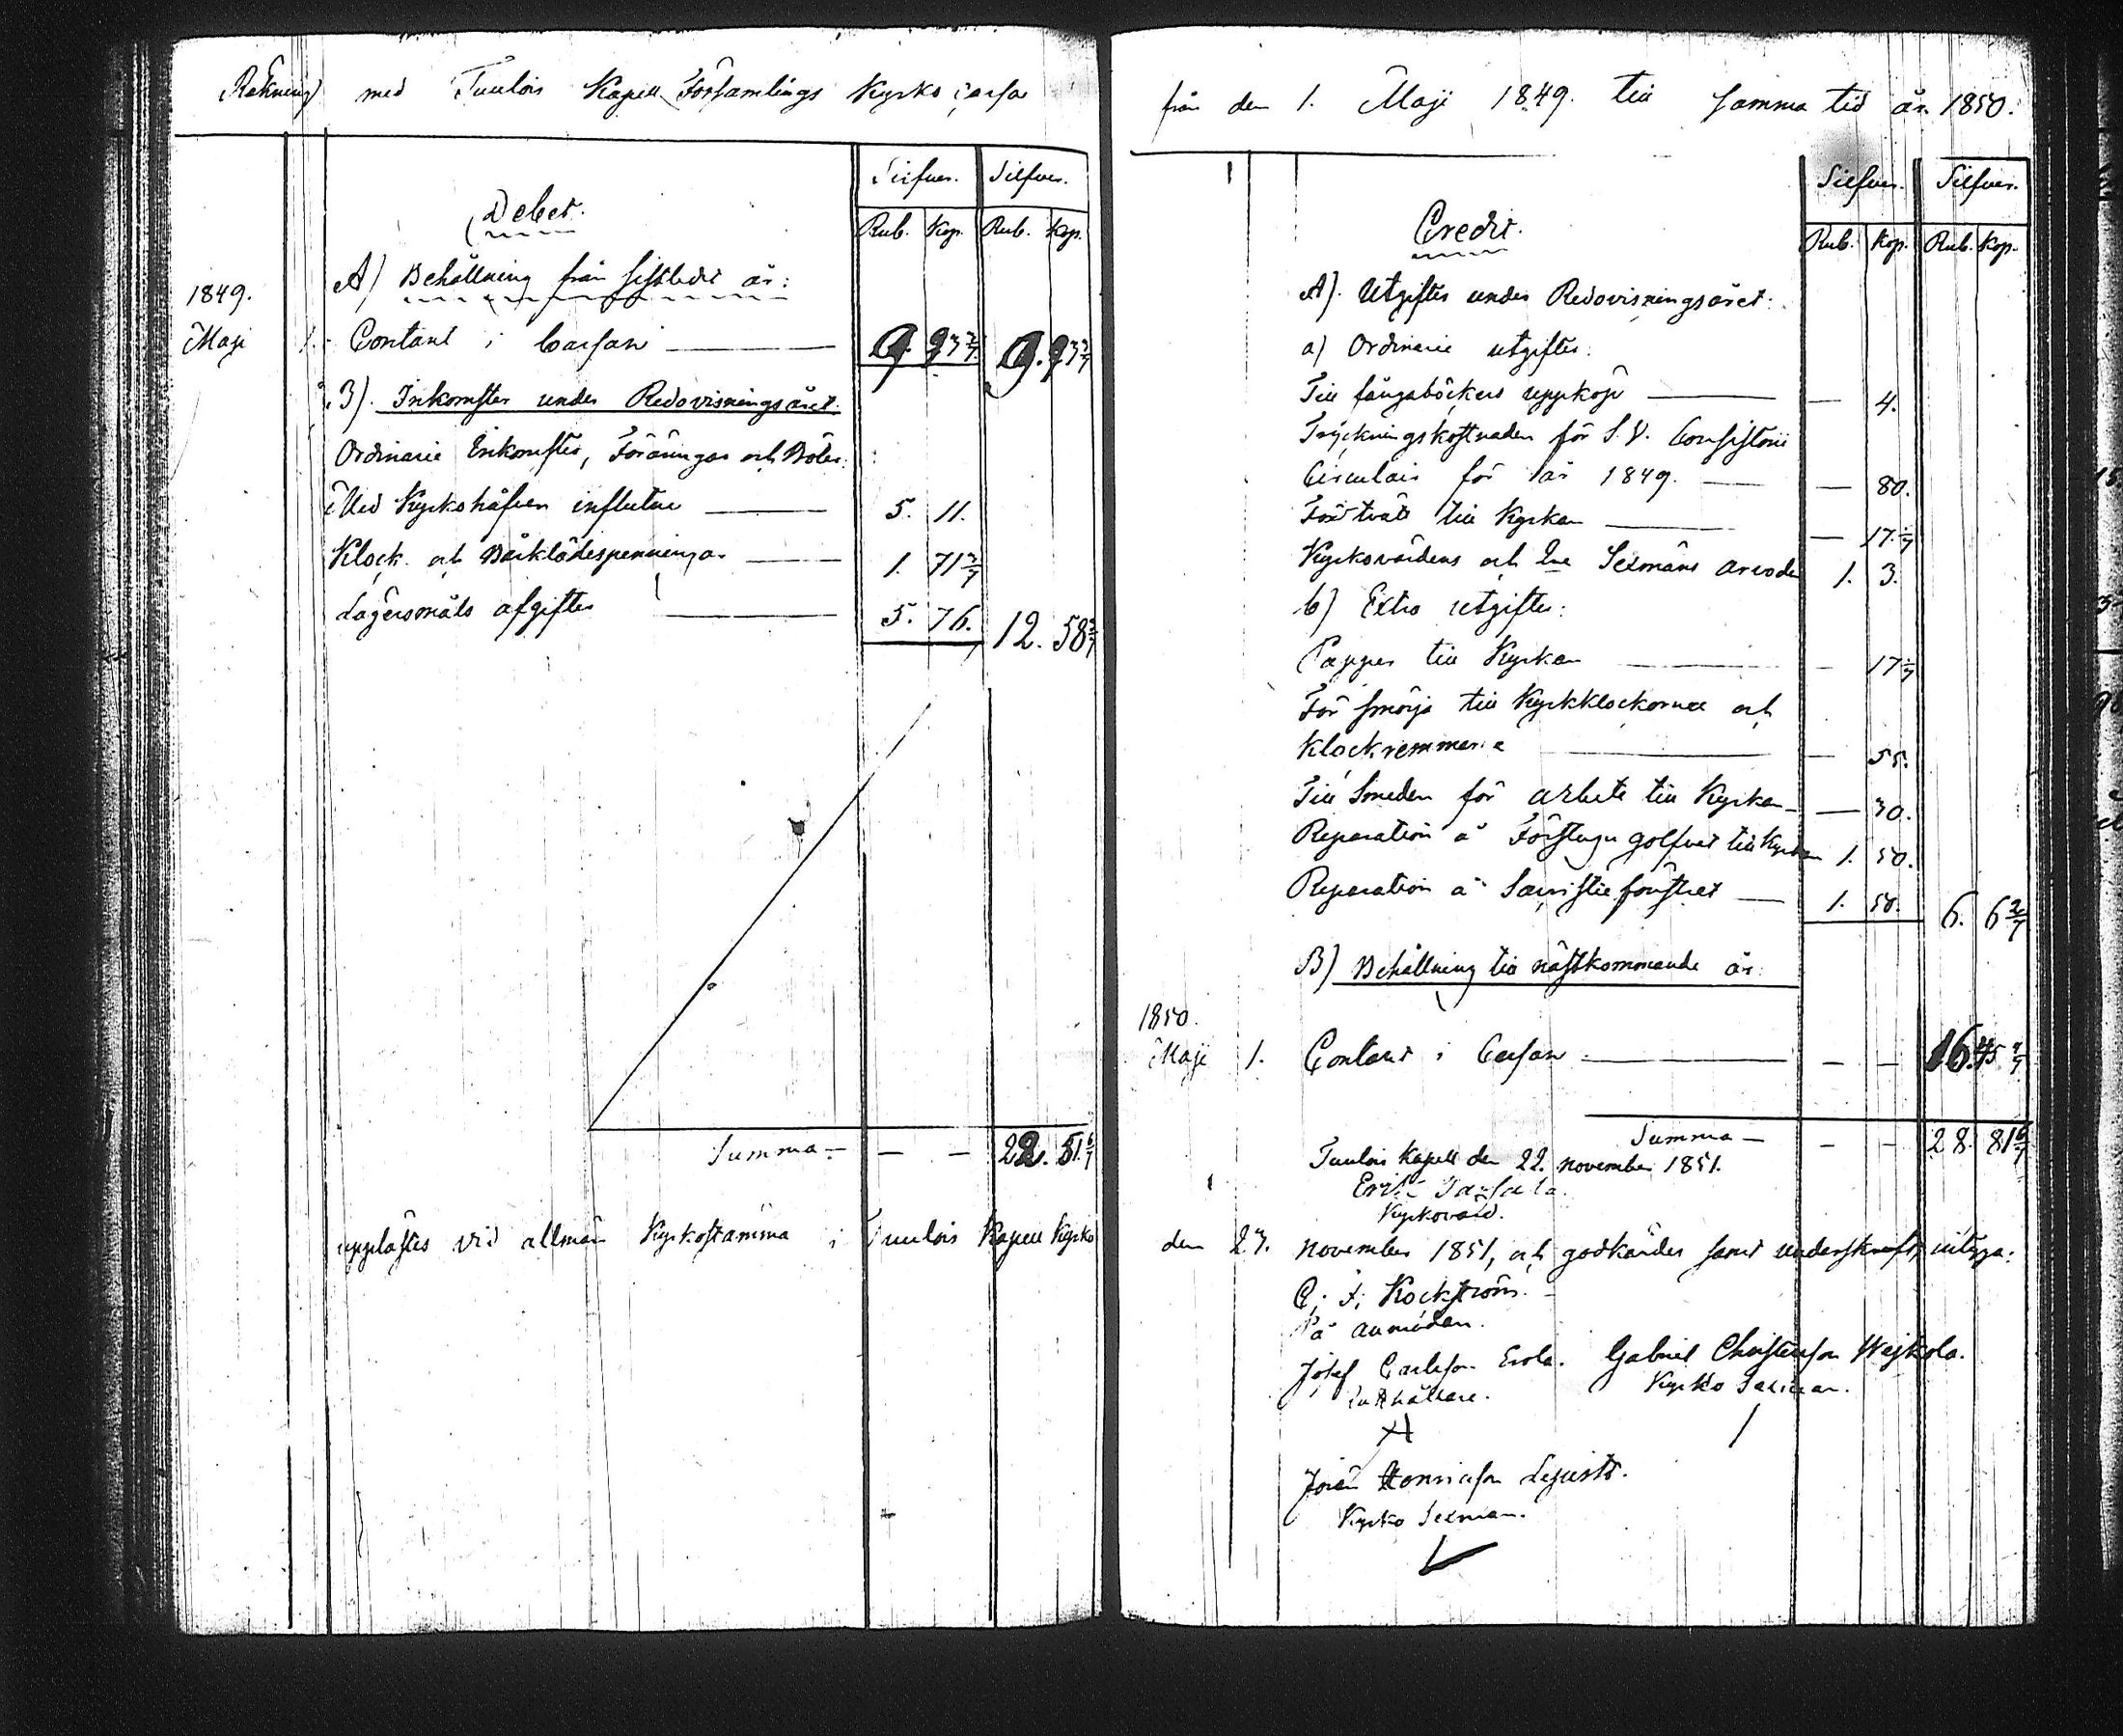 Räkning med Tuulois Kapell Församlings Kyrko Cassa
Silfver. Silfver.
Debet.
Rub. Kop. Rub. Kop.
1849. A) Behållning från sistledit år:
Maji 1. Contant i Cassan 9. 93 9. 93
B). Inkomster under Redovisningsåret.
Ordinarie Inkomster, Föräringar och Böter:
Med Kyrkohåfven influtne 5. 11.
Klock- och Bårklädespenningar 1. 71 3/7
Lägersmåls afgifter 5. 76. 12. 58 3/7
Summa – – – 22. 51 6/7
upplästes vid allmän Kyrkostämma i Tuulois Kapell Kyrko
från den 1. Maji 1849. till samma tid år 1850.
Silfver. Silfver.
Credit.
Rub. Kop. Rub. Kop.
A). Utgifter under Redovisningsåret:
a) Ordinarie utgifter:
Till fångaböckers uppköp — 4.
Tryckningskostnaden för S. V. Consistorii
Circulair för år 1849. — 80.
För tvätt till Kyrkan — 17 1/7
Kyrkovärdens och Sexmäns arvode 1. 3.
b) Extra utgifter:
Papper till Kyrkan — 17 1/7
För smörja till Kyrkklockorna och
Klockremmarne — 55.
Till Smeden för arbete till Kyrkan — 30.
Reparation å Förstugu golfvet till Kyrkan 1. 50.
Reparation å Sacristie fönstret 1. 50. 6. 6 2/7
B) Behållning till nästkommande år:
1850.
Maji 1. Contant i Cassan — — 16. 45 4/7
Summa – – – 28. 81 6/7
Tuulois Kapell den 22. november 1851.
Eric
Kyrkovärd.
den 23. november 1851, och godkändes samt underskrefs, intyga:
C. F. Kockström.
På anmodan.
Josef Carlsson Erola. Gabriel Christersson Wejkola.
Kyrko Sexman.
Kyrko Sexman.